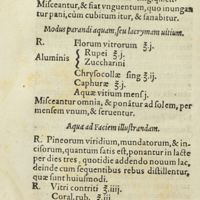 Misceantur, & fiat vnguentum, quo inungan
tur pani, cum cubitum itur, & sanabitur.
Modus parandi aquam, seu lacrymam uitium.
R. Florum vitrorum ℥ j.
Aluminis { Rupei ℥ j.
Zuccharini
Chrysocollæ sing ℥ ij.
Caphuræ ℥ j.
Aquæ vitium mens j.
Misceantur omnia, & ponãtur ad solem, per
mensem vnum, & seruentur.
Aqua ad Faciem illustrandam.
R. Pineorum viridium, mundatorum, & in-
cisorum, quantum satis est, ponantur in lacte
per dies tres, quotidie addendo nouum lac,
deinde cum sequentibus rebus distillentur,
quæ sunt huiusmodi.
R. Vitri contriti ℥ iiij.
Coral. rub. ℥ iij.